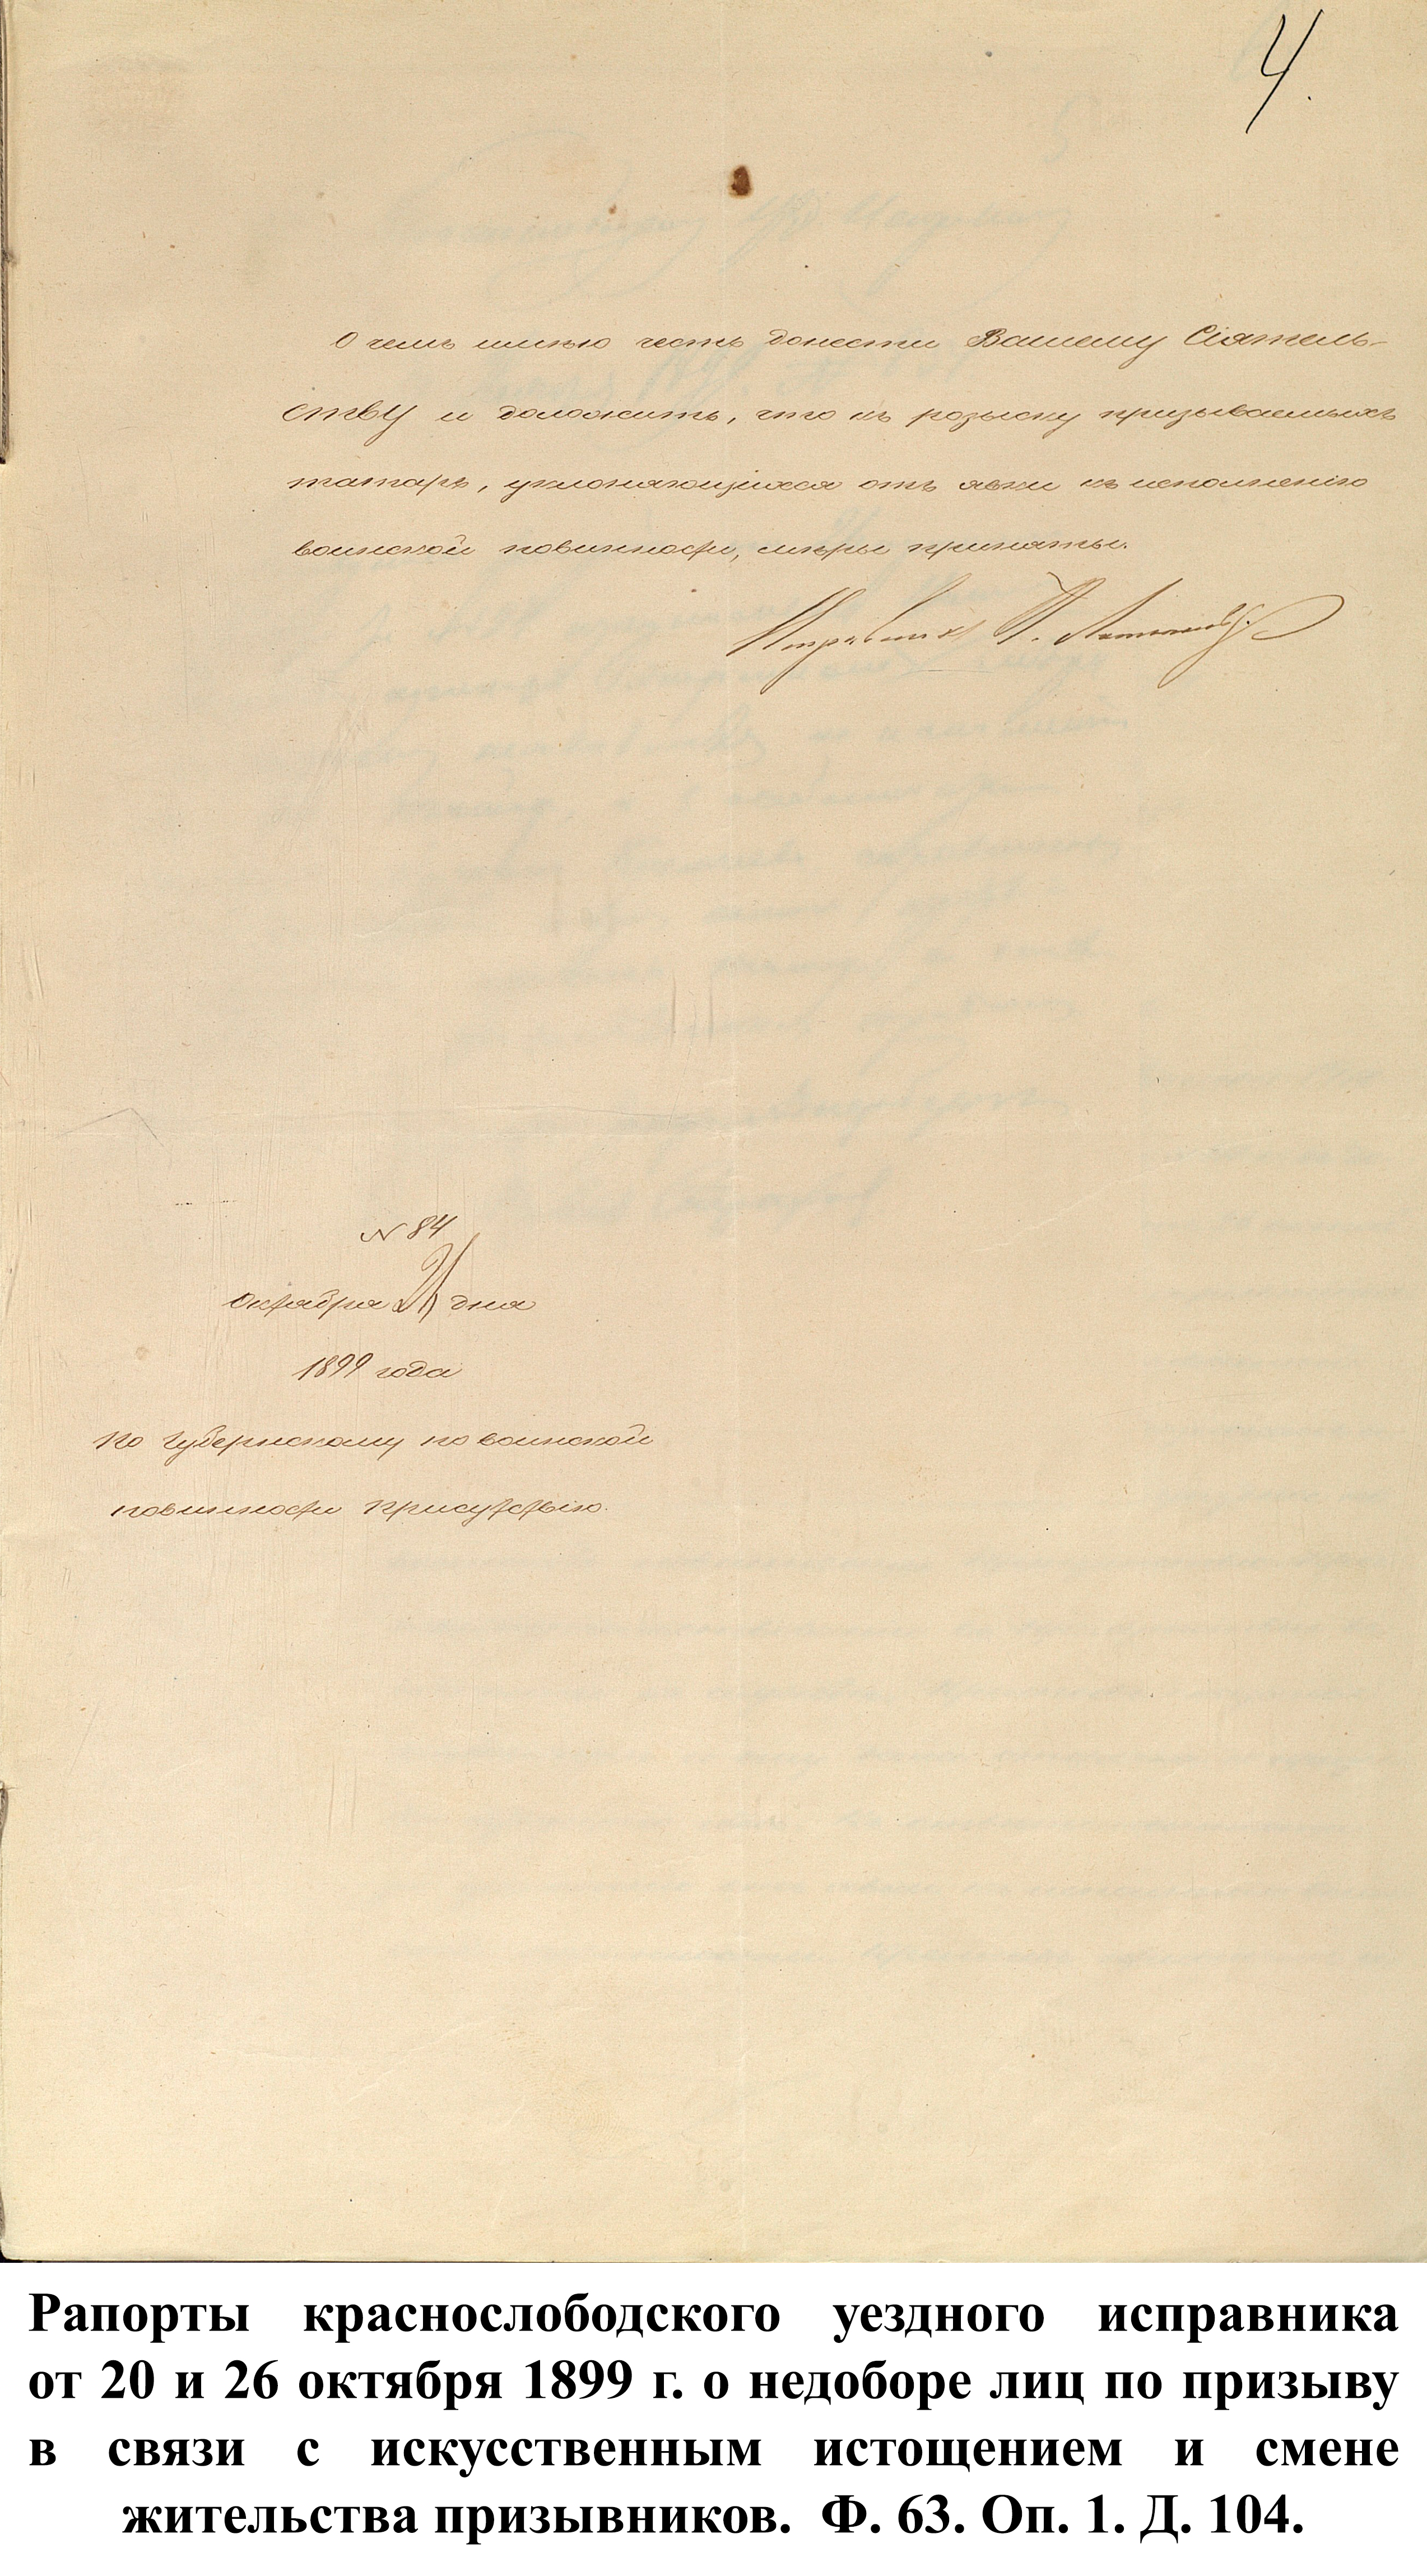 4.
О чемъ имѣю честь донести Вашему Сіятель-
ству и доложить, что къ розыску призываемыхъ
татаръ, уклоняющихся отъ явки къ исполненію
воинской повинности, мѣры приняты.
Исправникъ
N 84
октября дня
1899 года
По Губернскому по воинской
повинности Присутствію.
Рапорты краснослободского уездного исправника
от 20 и 26 октября 1899 г. о недоборе лиц по призыву
в связи с искусственным истощением и смене
жительства призывников. Ф. 63. Оп. 1. Д. 104.